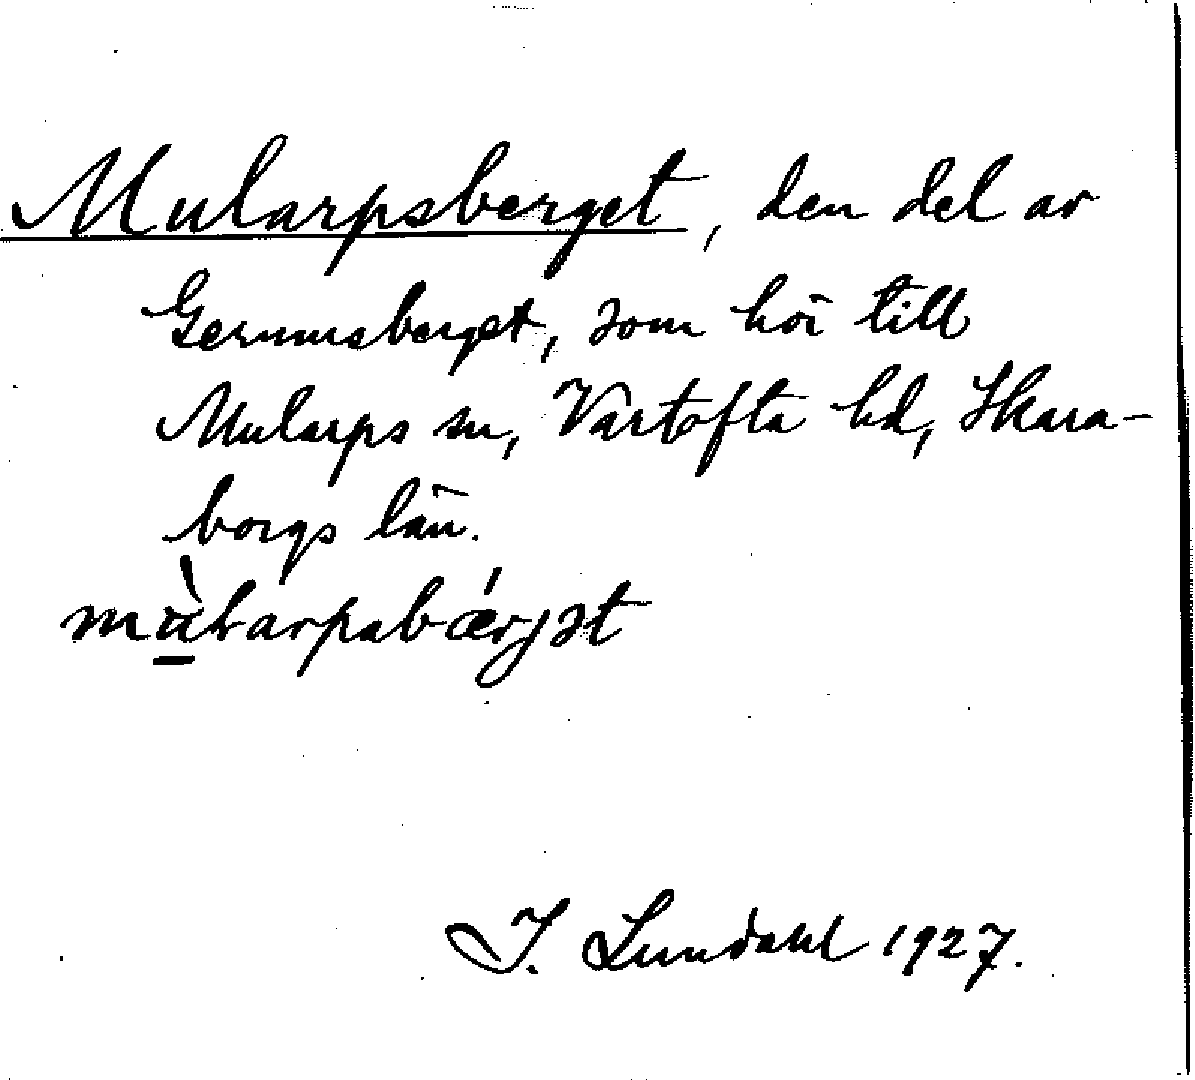 Mularpsberget, den del av
Gerumsberget, som hör till
Mularps sn, Vartofta hd, Skara-
borgs län.
I. Lundahl 1927.